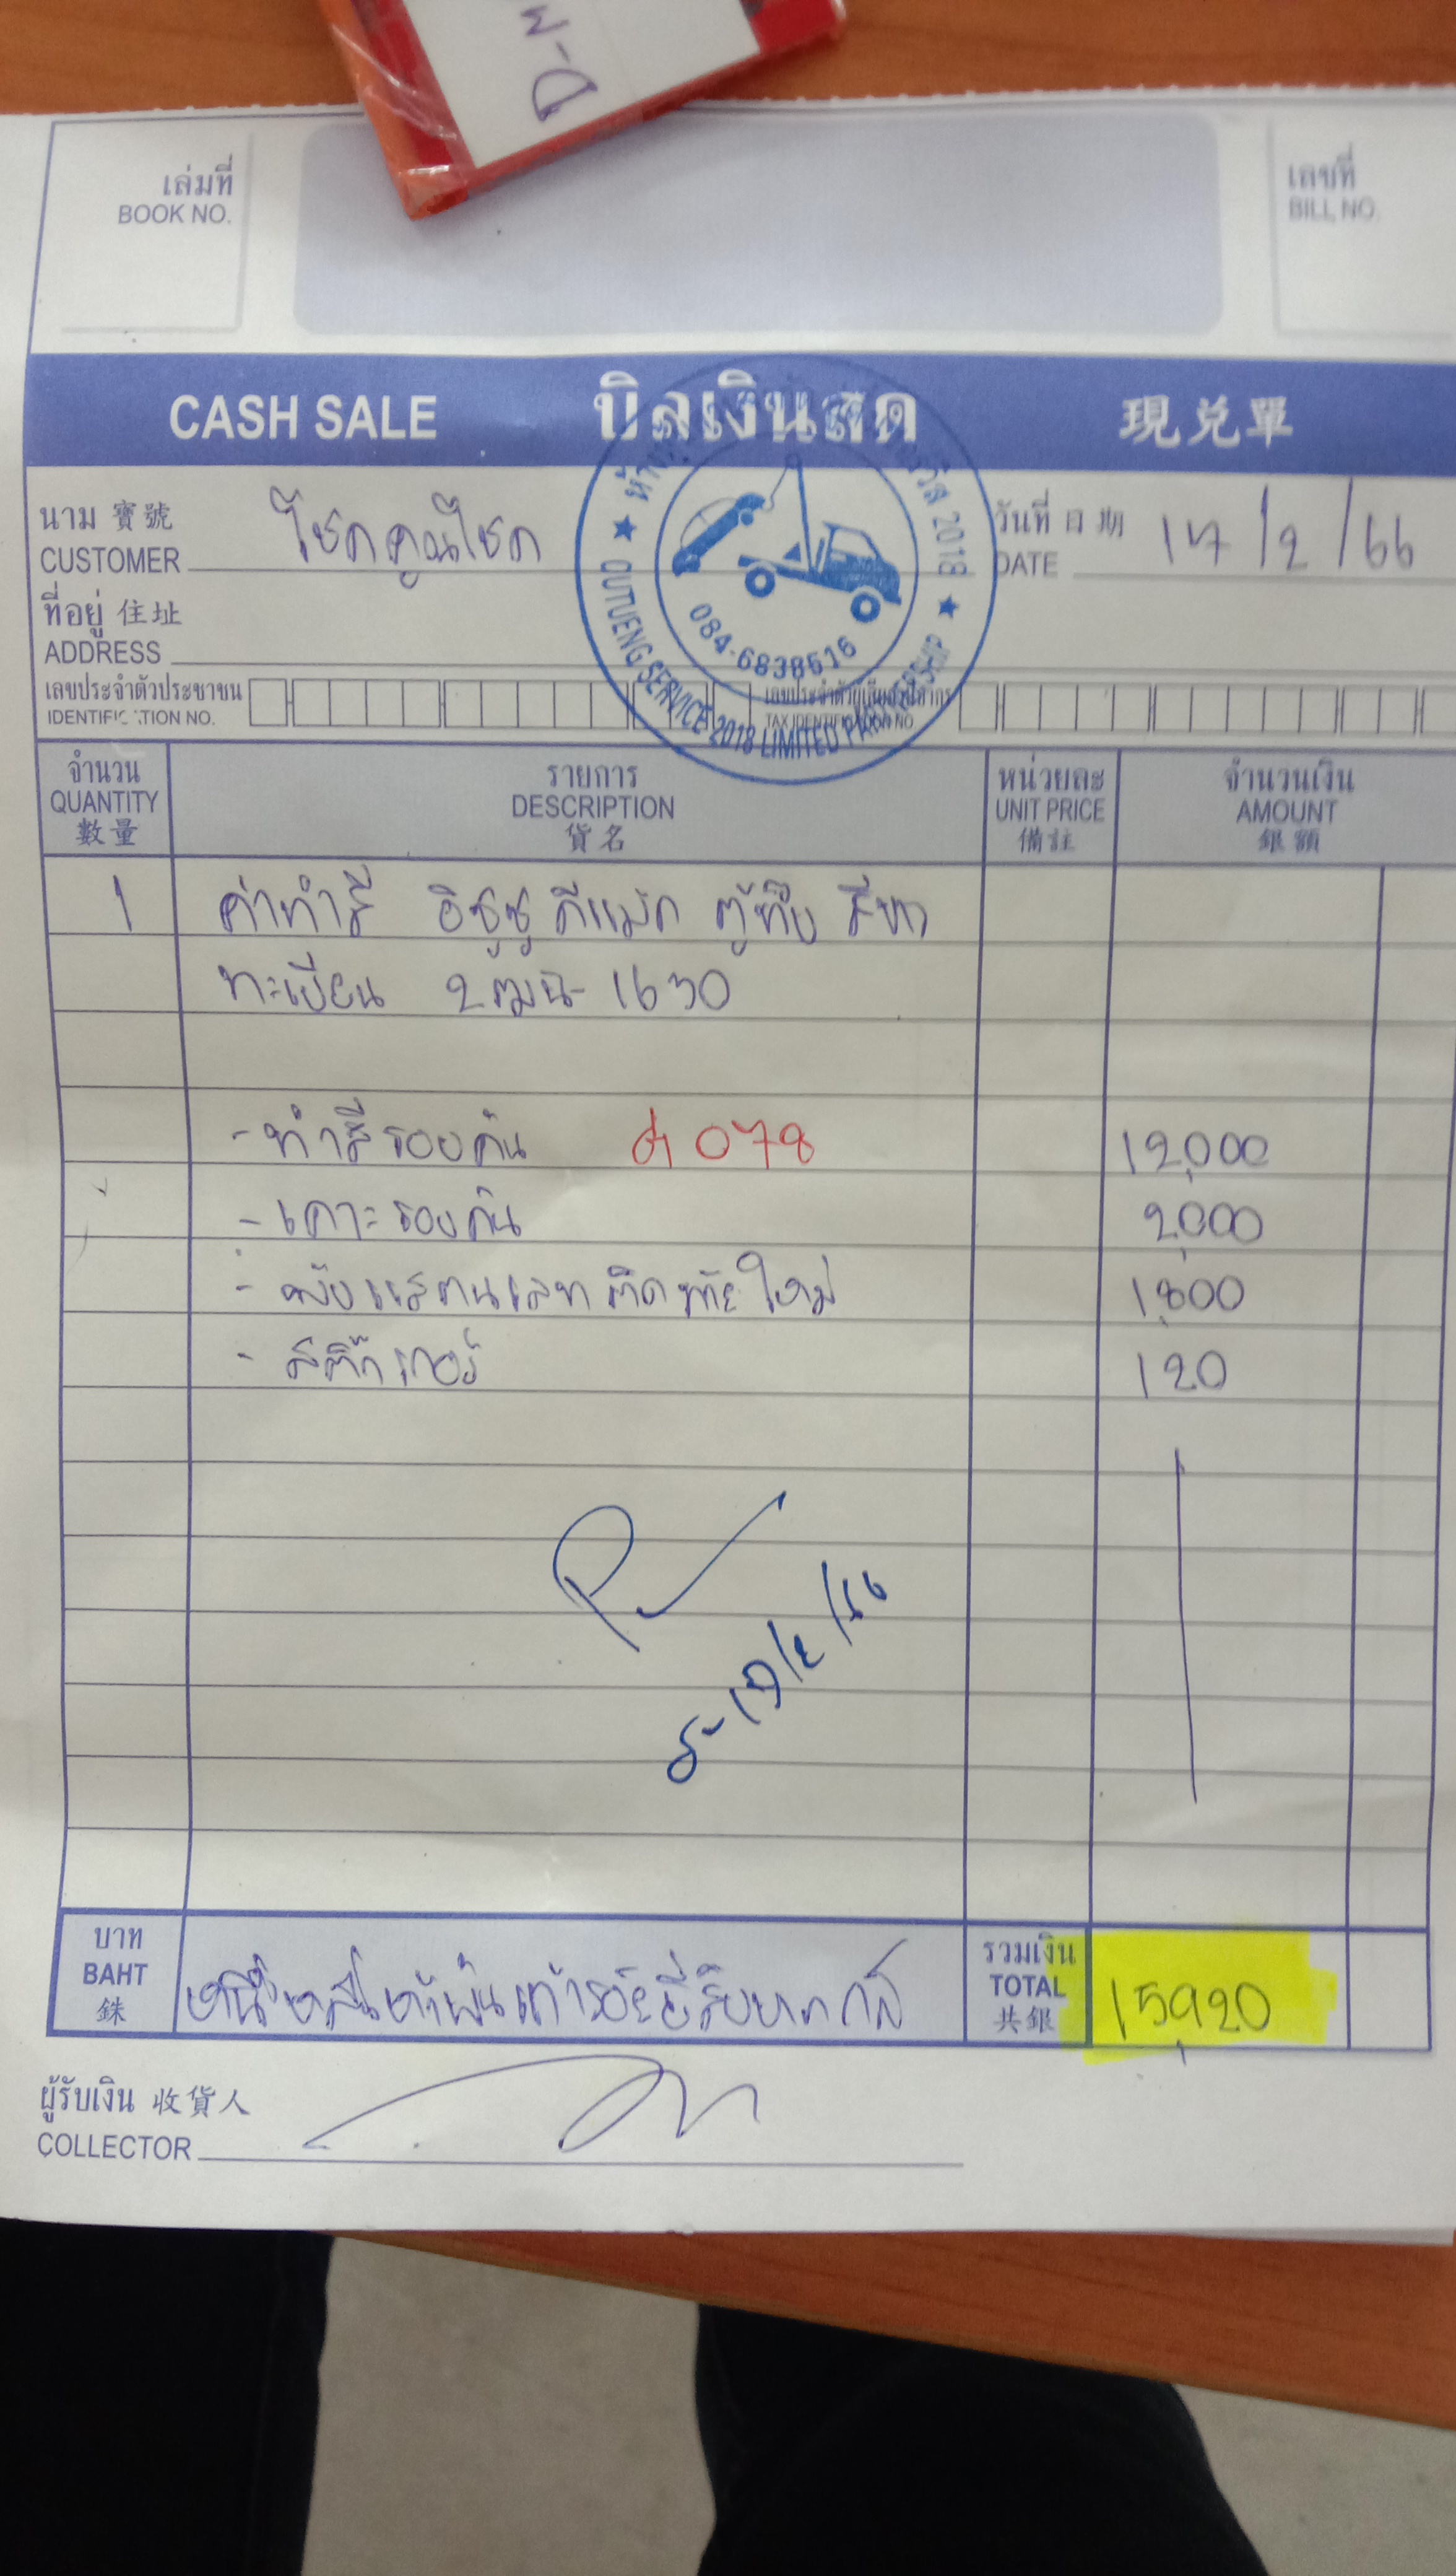 D-W
เล่มที่
BOOK NO.
เลขที่
BILL NO.
CASH SALE บิลเงินสด 現兑單
นาม 寶號
CUSTOMER โชคคูณโชค
วันที่ 日期
DATE 17/2/66
ที่อยู่ 住址
ADDRESS
2018
084-6838616
OUTUENG SERVICE 2018 LIMITED PARTNERSHIP
เลขประจำตัวประชาชน
IDENTIFICATION NO.
เลขประจำตัวผู้เสียภาษีอากร
TAX IDENTIFICATION NO.
จำนวน
QUANTITY
數量
รายการ
DESCRIPTION
貨名
หน่วยละ
UNIT PRICE
備註
จำนวนเงิน
AMOUNT
銀額
1 ค่าทำสี อิซูซุ ดีแม็ก ตู้ทึบ สีขาว
ทะเบียน 2ฒฉ-1630
- ทำสีรองคัน 078 12,000
- เคาะรอบคัน 2,000
- แสตนเลท ติดท้ายใหม่ 1,800
- สติ๊กเกอร์ 120
บาท
BAHT
銖
หนึ่งหมื่นห้าพันเก้าร้อยยี่สิบบาท
รวมเงิน
TOTAL
共銀
15,920
ผู้รับเงิน 收貨人
COLLECTOR